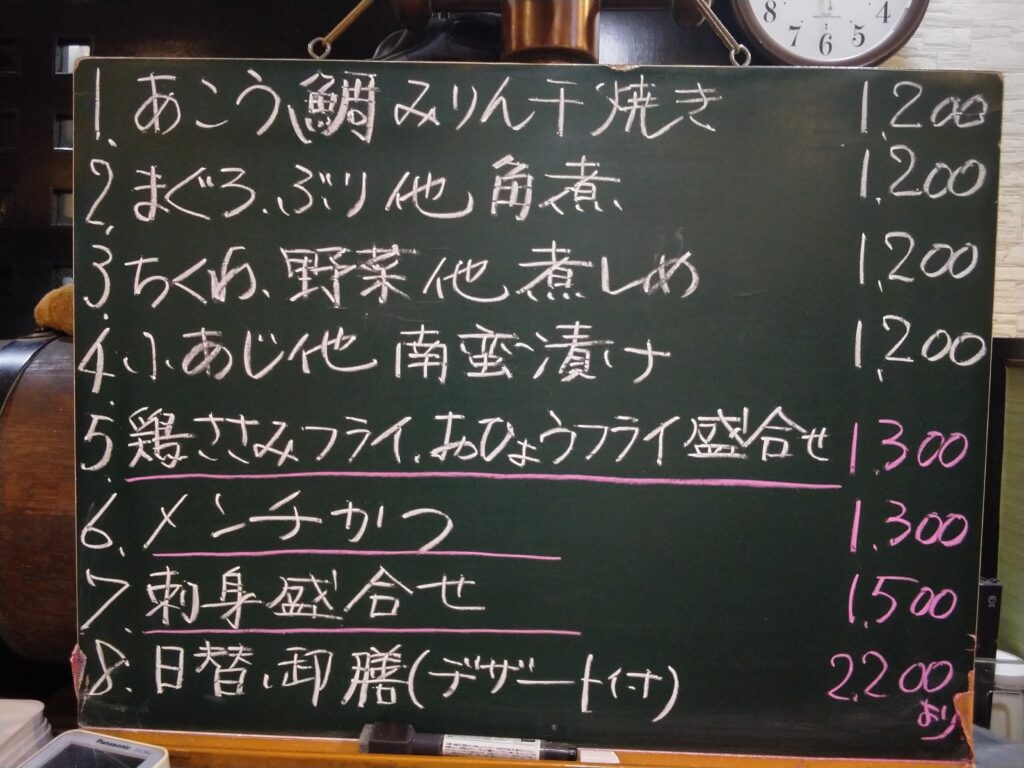 8 7 6 5 4
1. あこう鯛みりん干焼き 1,200
2. まぐろ、ぶり他 角煮 1,200
3. ちくわ、野菜他 煮しめ 1,200
4. 小あじ他 南蛮漬け 1,200
5. 鶏ささみフライ、あひょうフライ盛合せ 1,300
6. メンチかつ 1,300
7. 刺身盛合せ 1,500
8. 日替、御膳(デザート付) 2,200
より
Panasonic